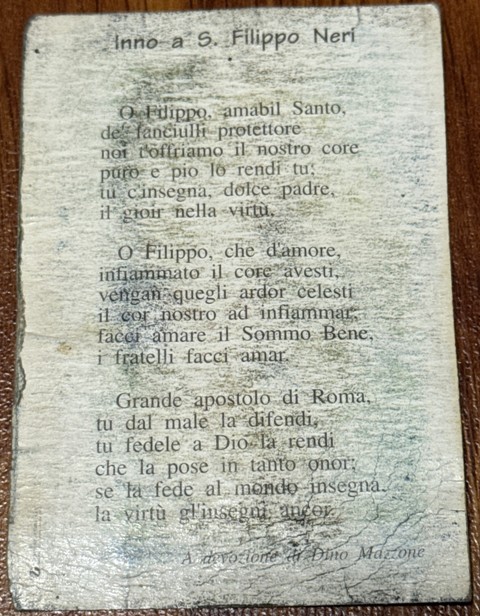 Inno a S. Filippo Neri
O Filippo, amabil Santo,
de' fanciulli protettore
noi t'offriamo il nostro core
puro e pio lo rendi tu;
tu c'insegna, dolce padre,
il gioir nella virtù.
O Filippo, che d'amore,
infiammato il core avesti,
vengan quegli ardor celesti
il cor nostro ad infiammar;
facci amare il Sommo Bene,
i fratelli facci amar.
Grande apostolo di Roma,
tu dal male la difendi,
tu fedele a Dio la rendi
che la pose in tanto onor;
se la fede al mondo insegna,
la virtù gl'insegni ancor.
A devozione di Dino Mazzone